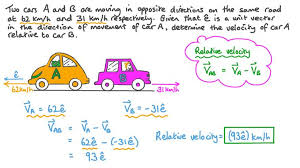 Two cars A and B are moving in opposite directions on the same road
at 62 km/h and 31 km/h respectively. Given that ê is a unit vector
in the direction of movement of car A, determine the velocity of car A
relative to car B.
Relative velocity
V⃗_AB = V⃗_A - V⃗_B
ê
A
B
62km/h
31 km/h
V⃗_A = 62ê
V⃗_B = -31ê
V⃗_AB = V⃗_A - V⃗_B
= 62ê - (-31ê)
= 93ê
Relative velocity = (93ê) km/h